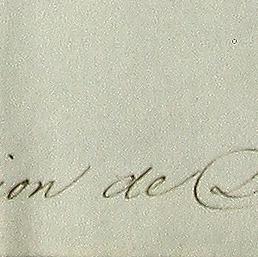 ion de